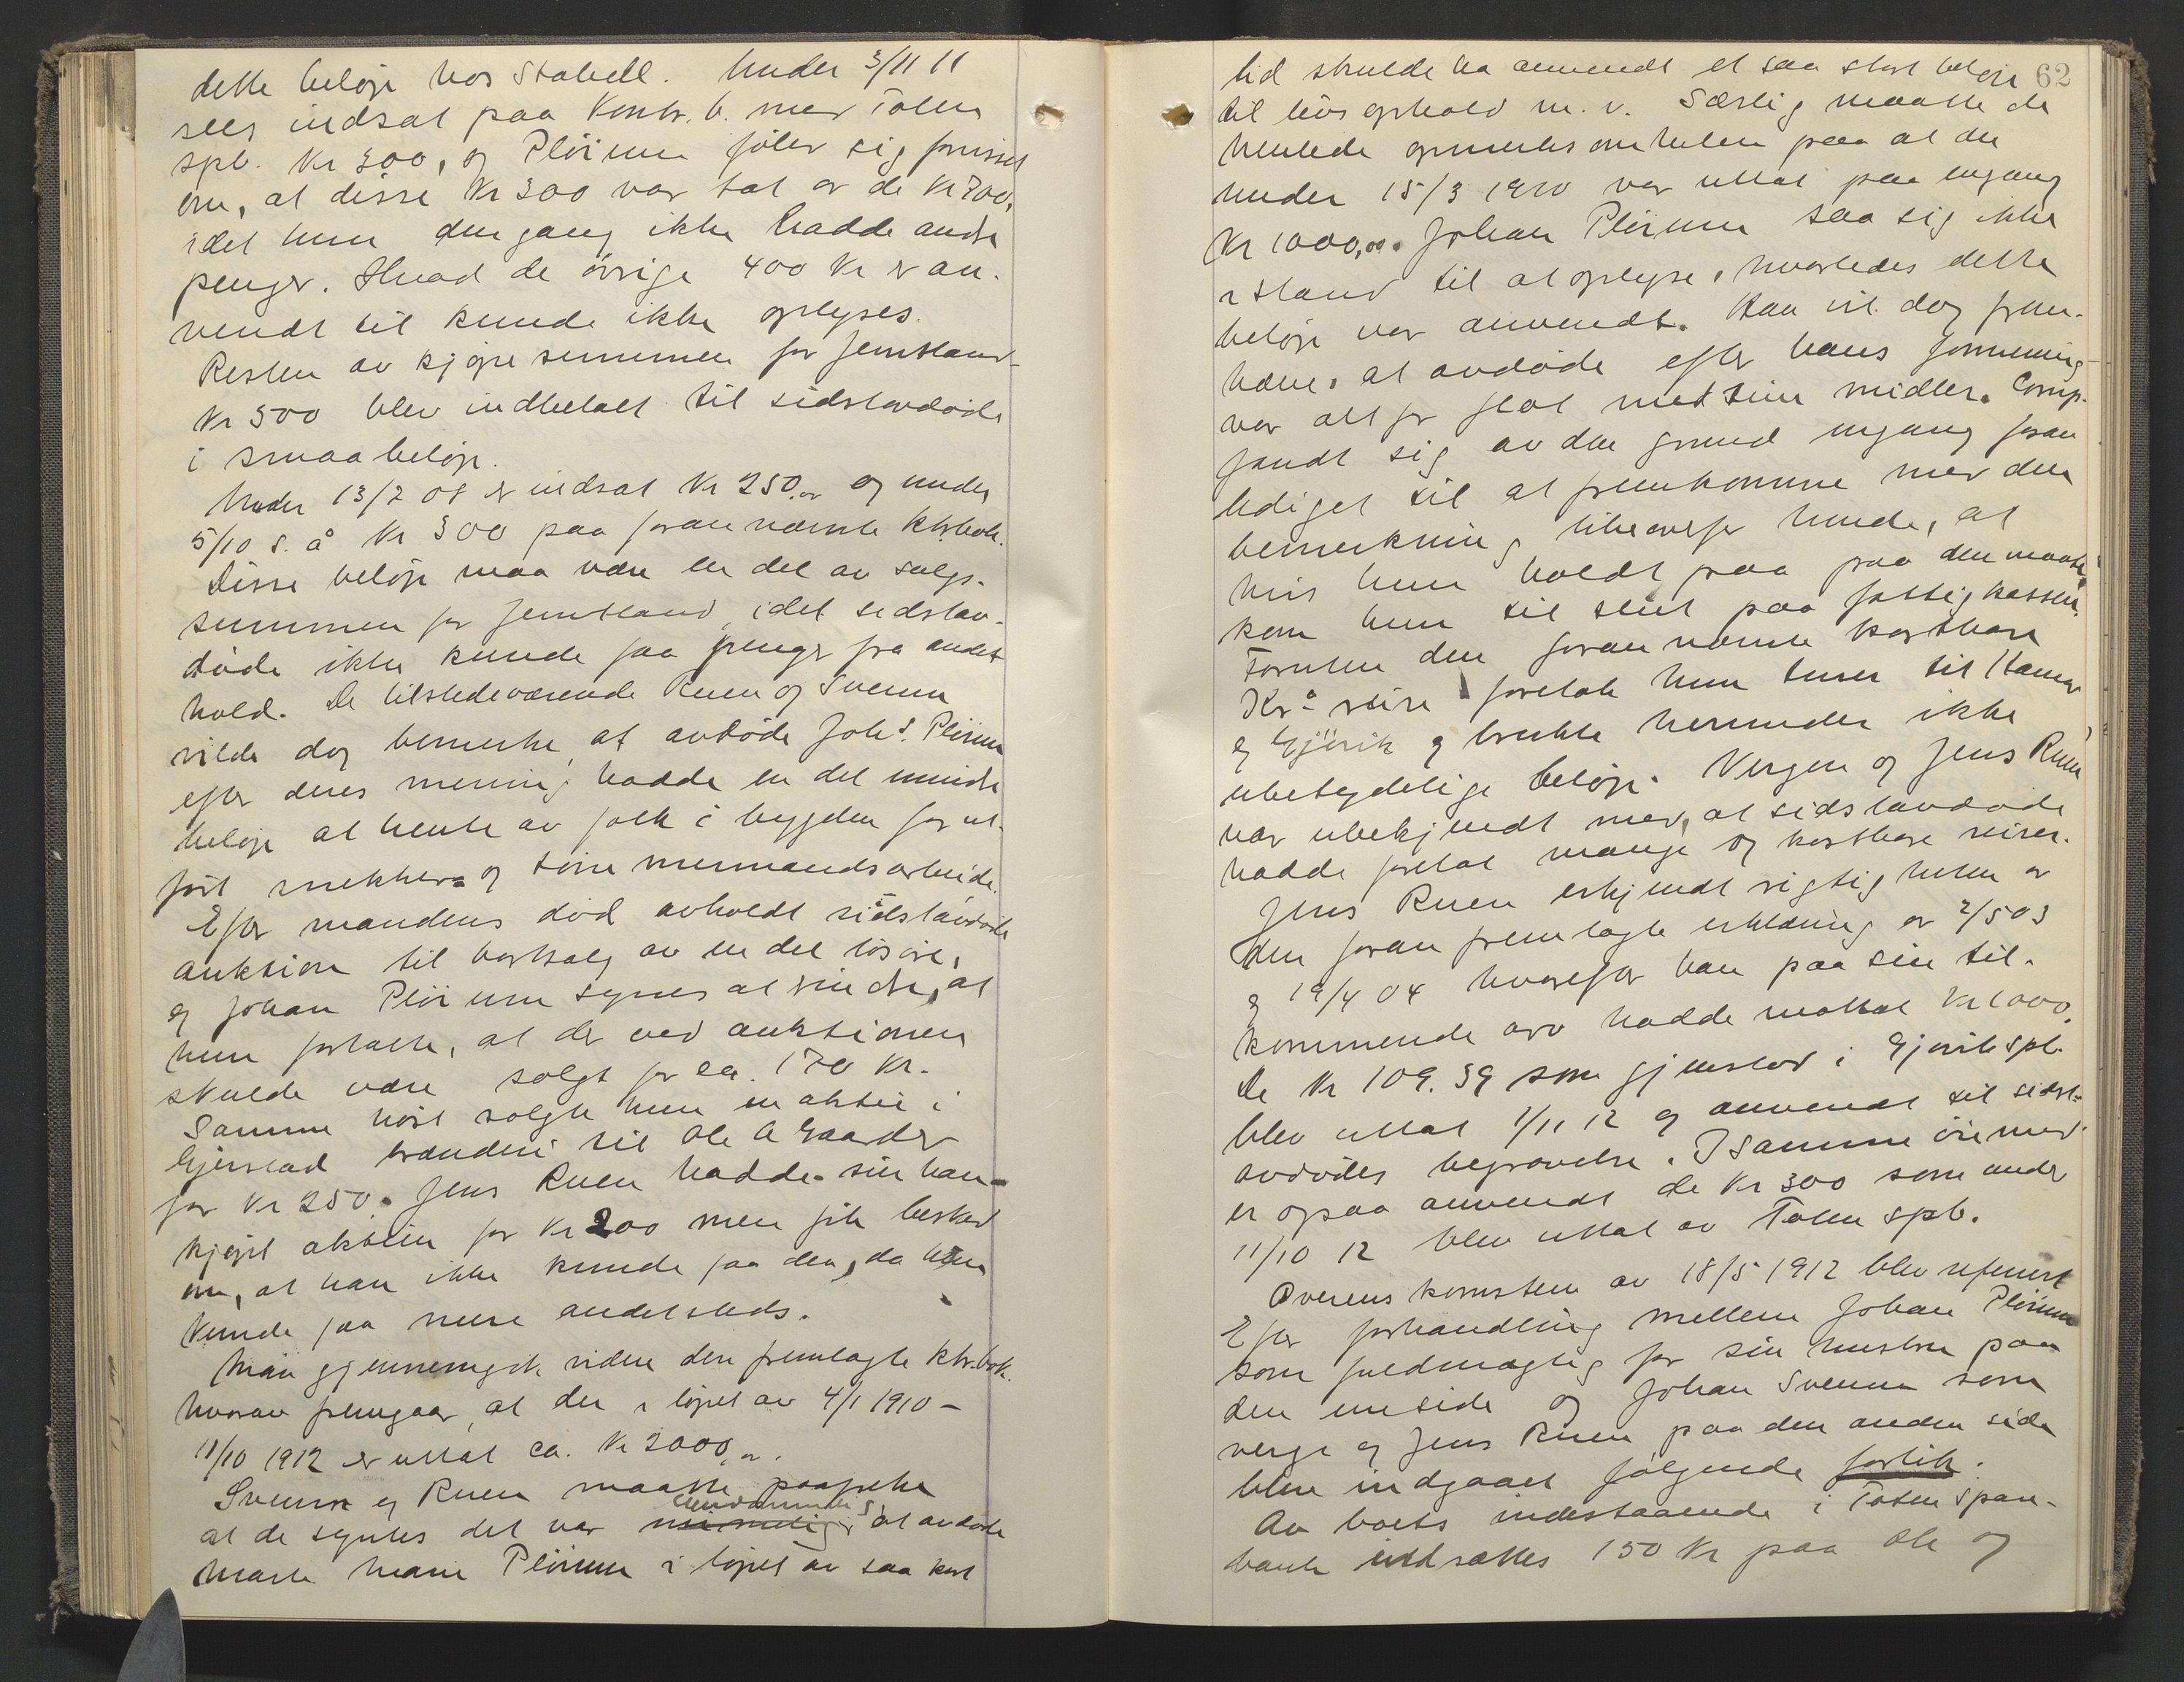 dette beløp hos Stabell. Under 3/11 11
sees indsat paa Kontr. b. med Toten
spb. Kr 300, og Pløium føler sig forvisset
om, at disse Kr 300 var tat av de Kr 700,
idet hun dengang ikke hadde andre
penger. Hvad de øvrige 400 Kr er an-
vendt til kunde ikke oplyses.
Resten av kjøpesummen for Jemtland
Kr 500 blev indbetalt til sidstavdøde
i smaabeløp.
Under 13/2 08 er indsat Kr 250.00 og under
5/10 s. å Kr 300 paa forannævnte ktrbok.
Disse beløp maa være en del av salgs-
summen for Jemtland, idet sidstav-
døde ikke kunde faa penger fra andet
hold. De tilstedeværende Ruen og Svenn
vilde dog bemerke, at avdøde Johs. Pløium
efter deres mening hadde en del mindre
beløp at hente av folk i bygden for ut-
ført snekker- og tømmermandsarbeide.
Efter mandens død avholdt sidstavdøde
auktion til bortsalg av en del løsøre,
og Johan Pløium synes at mindes, at
hun fortalte, at der ved auktionen
skulde være solgt for ca. 170 Kr.
Samme høst solgte hun en aktie i
Gjerstad brænderi til Ole A Gaarder
for Kr 250. Jens Ruen hadde sin han-
kjøpt aktien for Kr 200 men fik besked
om, at han ikke kunde faa den, da hun
kunde faa mere andetsteds.
Man gjennemgik videre den fremlagte ktr.bok.
hvorav fremgaar, at der i løpet av 4/1 1910 -
11/10 1912 er uttat ca. Kr 2000,00.
Svenn og Ruen maatte paapeke
at de syntes det var eiendommelig at avdøde
Marte Marie Pløium i løpet av saa kort
62
tid skulde ha anvendt et saa stort beløp
til livsophold m. v. Særlig maatte de
henlede opmerksomheten paa at der
under 15/3 1910 var uttat paa engang
Kr 1000,00. Johan Pløium saa sig ikke
istand til at oplyse, hvorledes dette
beløp var anvendt. Han vil dog frem-
hæve, at avdøde efter hans formening
var altfor flot med sine midler. Comp.
fandt sig av den grund engang foran-
lediget til at fremkomme med den
bemerkning likeoverfor hende, at
hvis hun holdt paa paa den maate,
kom hun til slut paa fattigkassen.
Foruten den forannævnte kostbare
Kr.a reise foretok hun turer til Hamar
og Gjøvik og brukte herunder ikke
ubetydelige beløp. Vergen og Jens Ruen
var ubekjendt med, at sidstavdøde
hadde foretat mange og kostbare reiser.
Jens Ruen erkjendt rigtigheten av
den foran fremlagte erklæring av 2/5 03
og 19/4 04 hvorefter han paa sin til-
kommende arv hadde mottat Kr 1000.
De Kr 109.39 som gjenstod i Gjøvik spb.
blev uttat 1/11 12 og anvendt til sidst-
avdødes begravelse. I samme øiemed
er ogsaa anvendt de Kr 300 som under
11/10 12 blev uttat av Toten spb.
Overenskomsten av 18/5 1912 blev referert
Efter forhandling mellem Johan Pløium
som fuldmægtig for sin hustru paa
den ene side og Johan Svenn som
verge og Jens Ruen paa den anden side
blev indgaaet følgende forlik:
Av boets indestaaende i Toten spare-
bank indsættes 150 Kr paa Ole og